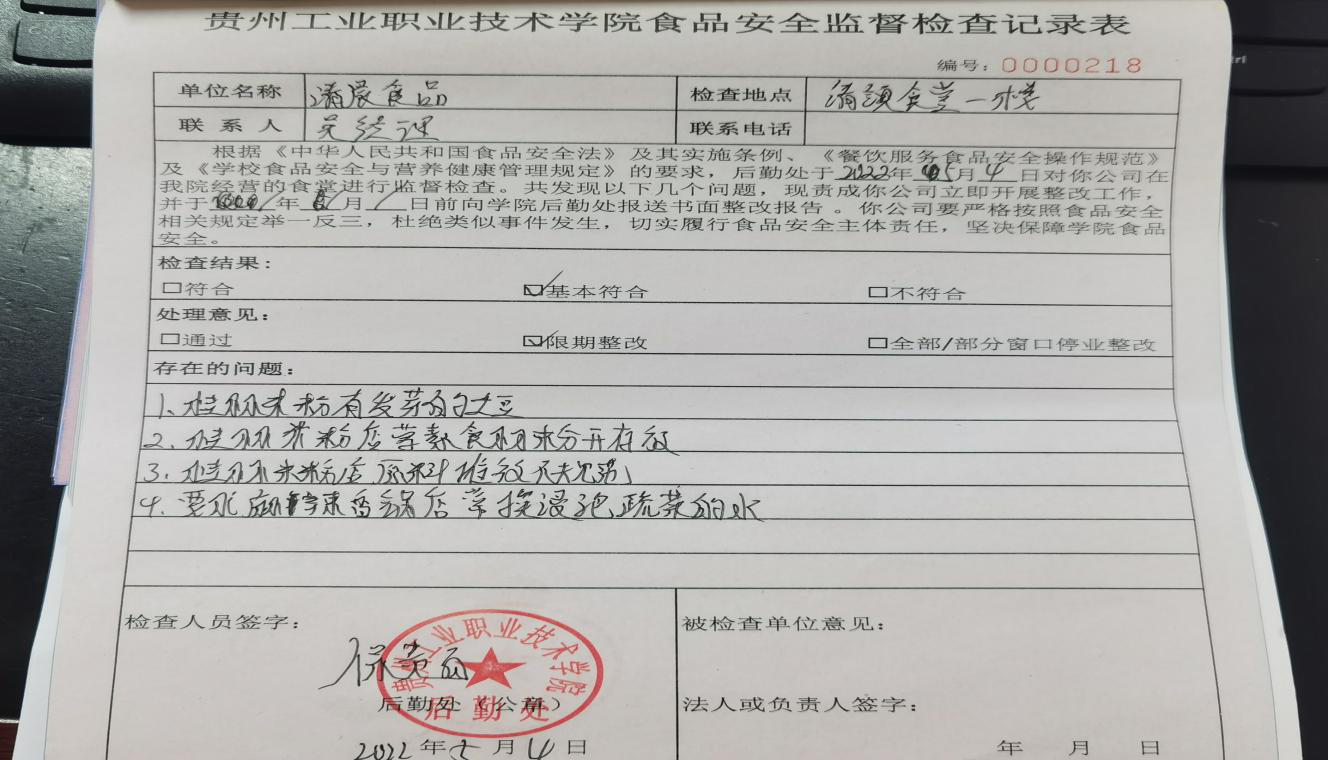 贵州工业职业技术学院食品安全监督检查记录表
编号：0000218
单位名称 清晨食品 检查地点 清颂食堂一楼
联系人 吴经理 联系电话
根据《中华人民共和国食品安全法》及其实施条例、《餐饮服务食品安全操作规范》
及《学校食品安全与营养健康管理规定》的要求，后勤处于2022年05月4日对你公司在
我院经营的食堂进行监督检查。共发现以下几个问题，现责成你公司立即开展整改工作，
并于 年 月 日前向学院后勤处报送书面整改报告。你公司要严格按照食品安全
相关规定举一反三，杜绝类似事件发生，切实履行食品安全主体责任，坚决保障学院食品
安全。
检查结果：
□符合 ☑基本符合 □不符合
处理意见：
□通过 ☑限期整改 □全部/部分窗口停业整改
存在的问题：
1、桂林米粉有发芽的土豆
2、桂林米粉店荤素食材未分开存放
3、桂林米粉店原料堆放
4、要求麻辣香锅店常换浸泡蔬菜的水
检查人员签字： 被检查单位意见：
贵州工业职业技术学院
后勤处
后勤处（公章） 法人或负责人签字：
2022年5月4日 年 月 日